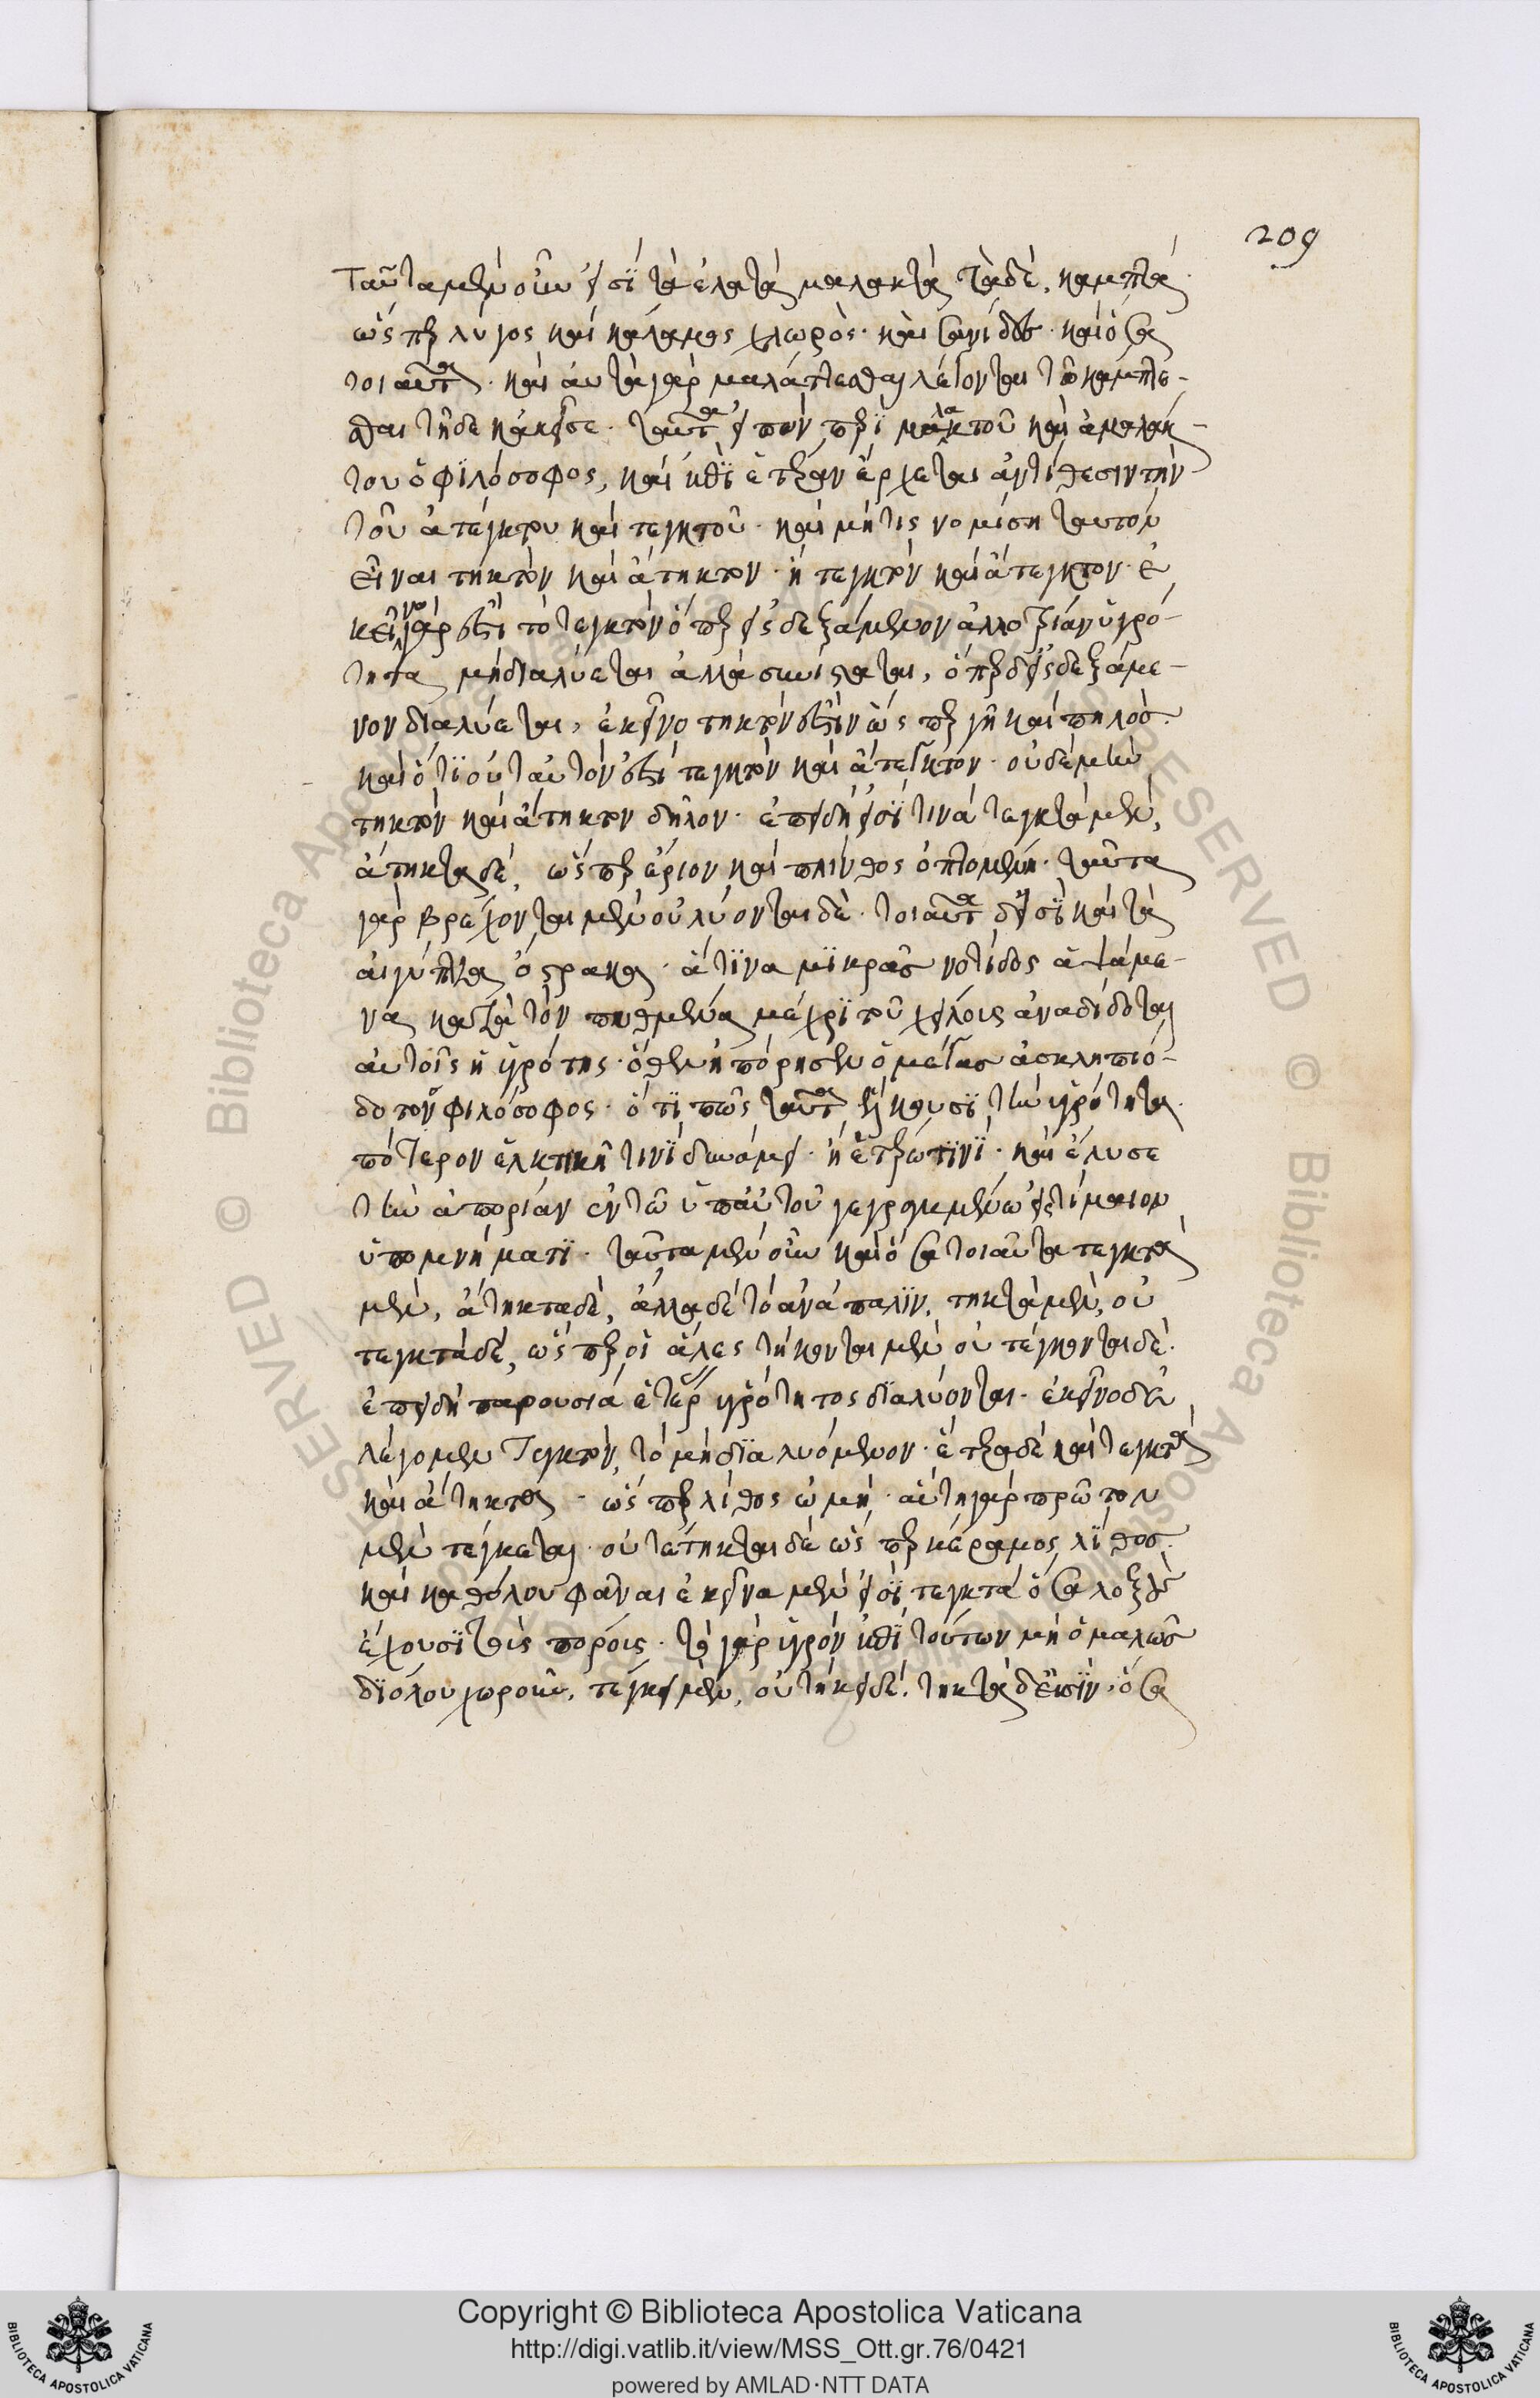 209
Ταῦτα μὲν οὖν εἰσὶ τὰ ἐλατὰ μαλακτά τὰ δὲ, καμπτά·
ὥσπερ λύγος καὶ κάλαμος χλωρὸς· καὶ σανίδες· καὶ ὅσα
τοιαῦτα· καὶ αὐτὰ γὰρ μαλάττεσθαι λέγονται τῷ κάμπτε-
σθαι τῇδε κἀκεῖσε· ταῦτα εἰπὼν περὶ μαλακτοῦ καὶ ἀμαλάκ-
του ὁ φιλόσοφος, καὶ ἐπὶ ἑτέραν ἔρχεται ἀντίθεσιν τὴν
τοῦ ἀτέγκτου καὶ τεγκτοῦ· καὶ μή τις νομίση ταυτὸν
εἶναι τηκτὸν καὶ ἄτηκτον· ἢ τεγκτὸν καὶ ἄτεγκτον· ἐ
κεῖνο γάρ ἐστι τὸ τεγκτὸν ὅπερ εἰσδεξάμενον ἀλλοτρίαν ὑγρό-
τητα μὴ διαλύεται ἀλλὰ συνίσταται, ὅπερ δ' εἰσδεξάμε-
νον διαλύεται, ἐκεῖνο τηκτόν ἐστιν ὥσπερ γῆ καὶ πηλός·
καὶ ὅτι οὐ ταὐτόν ἐστι τεγκτὸν καὶ ἄτεγκτον· οὐδὲ μὴν
τηκτὸν καὶ ἄτηκτον δῆλον· ἐπειδή εἰσί τινα τεγκτὰ μὲν,
ἄτηκτα δέ, ὥσπερ ἔριον καὶ πλίνθος ὀπτομένη· ταῦτα
γὰρ βρέχονται μὲν οὐ λύονται δὲ· τοιαῦτα δ' εἰσὶ καὶ τὰ
αἰγύπτια ὄστρακα· ἅτινα μικρᾶς νοτίδος ἁψάμε-
να κατὰ τὸν πυθμένα μέχρι τοῦ χείλοις ἀναδίδοται
αὐτοῖς ἡ ὑγρότης· ὅθεν ἠπόρησεν ὁ μέγας ἀσκληπιό-
δοτος φιλόσοφος· ὅτι πῶς ταῦτα ἕλκουσι τὴν ὑγρότητα·
πότερον ἑλκτικῇ τινὶ δυνάμει· ἢ ἑτέρω τινί· καὶ ἔλυσε
τὴν ἀπορίαν ἐν τῶ ὑπ' αὐτοῦ γεγραμμένω εἰς τίμαιον
ὑπομνήματι· ταῦτα μὲν οὖν καὶ ὅσα τοιαῦτα τεγκτὰ
μὲν, ἄτηκτα δὲ, ἄλλα δὲ τὸ ἀνάπαλιν, τηκτὰ μὲν, οὐ
τεγκτὰ δέ, ὥσπερ οἱ ἅλες τήκονται μὲν οὐ τέγκονται δὲ·
ἐπειδὴ παρουσία ἑτέρας ὑγρότητος διαλύονται· ἐκεῖνο δὲ
λέγομεν τεγκτὸν, τὸ μὴ διαλυόμενον· ἕτερα δὲ καὶ τεγκτὰ
καὶ ἄτηκτα· ὥσπερ λίθος ὠμή· αὕτη γὰρ πρῶτον
μὲν τέγκεται· οὐ τέτηκται δὲ ὥσπερ κέραμος λίθος·
καὶ καθόλου φάναι ἐκεῖνα μὲν εἰσὶ τεγκτά ὅσα λοξοὺς
ἔχουσι τοῖς πόροις· τὸ γὰρ ὑγρὸν ἐπὶ τούτων μὴ ὁμαλῶς
διόλου χωροῦν, τέγκει μὲν, οὐ τήκει δέ. τηκτὰ δ' εἰσὶν· ὅσα
Copyright © Biblioteca Apostolica Vaticana
http://digi.vatlib.it/view/MSS_Ott.gr.76/0421
powered by AMLAD·NTT DATA